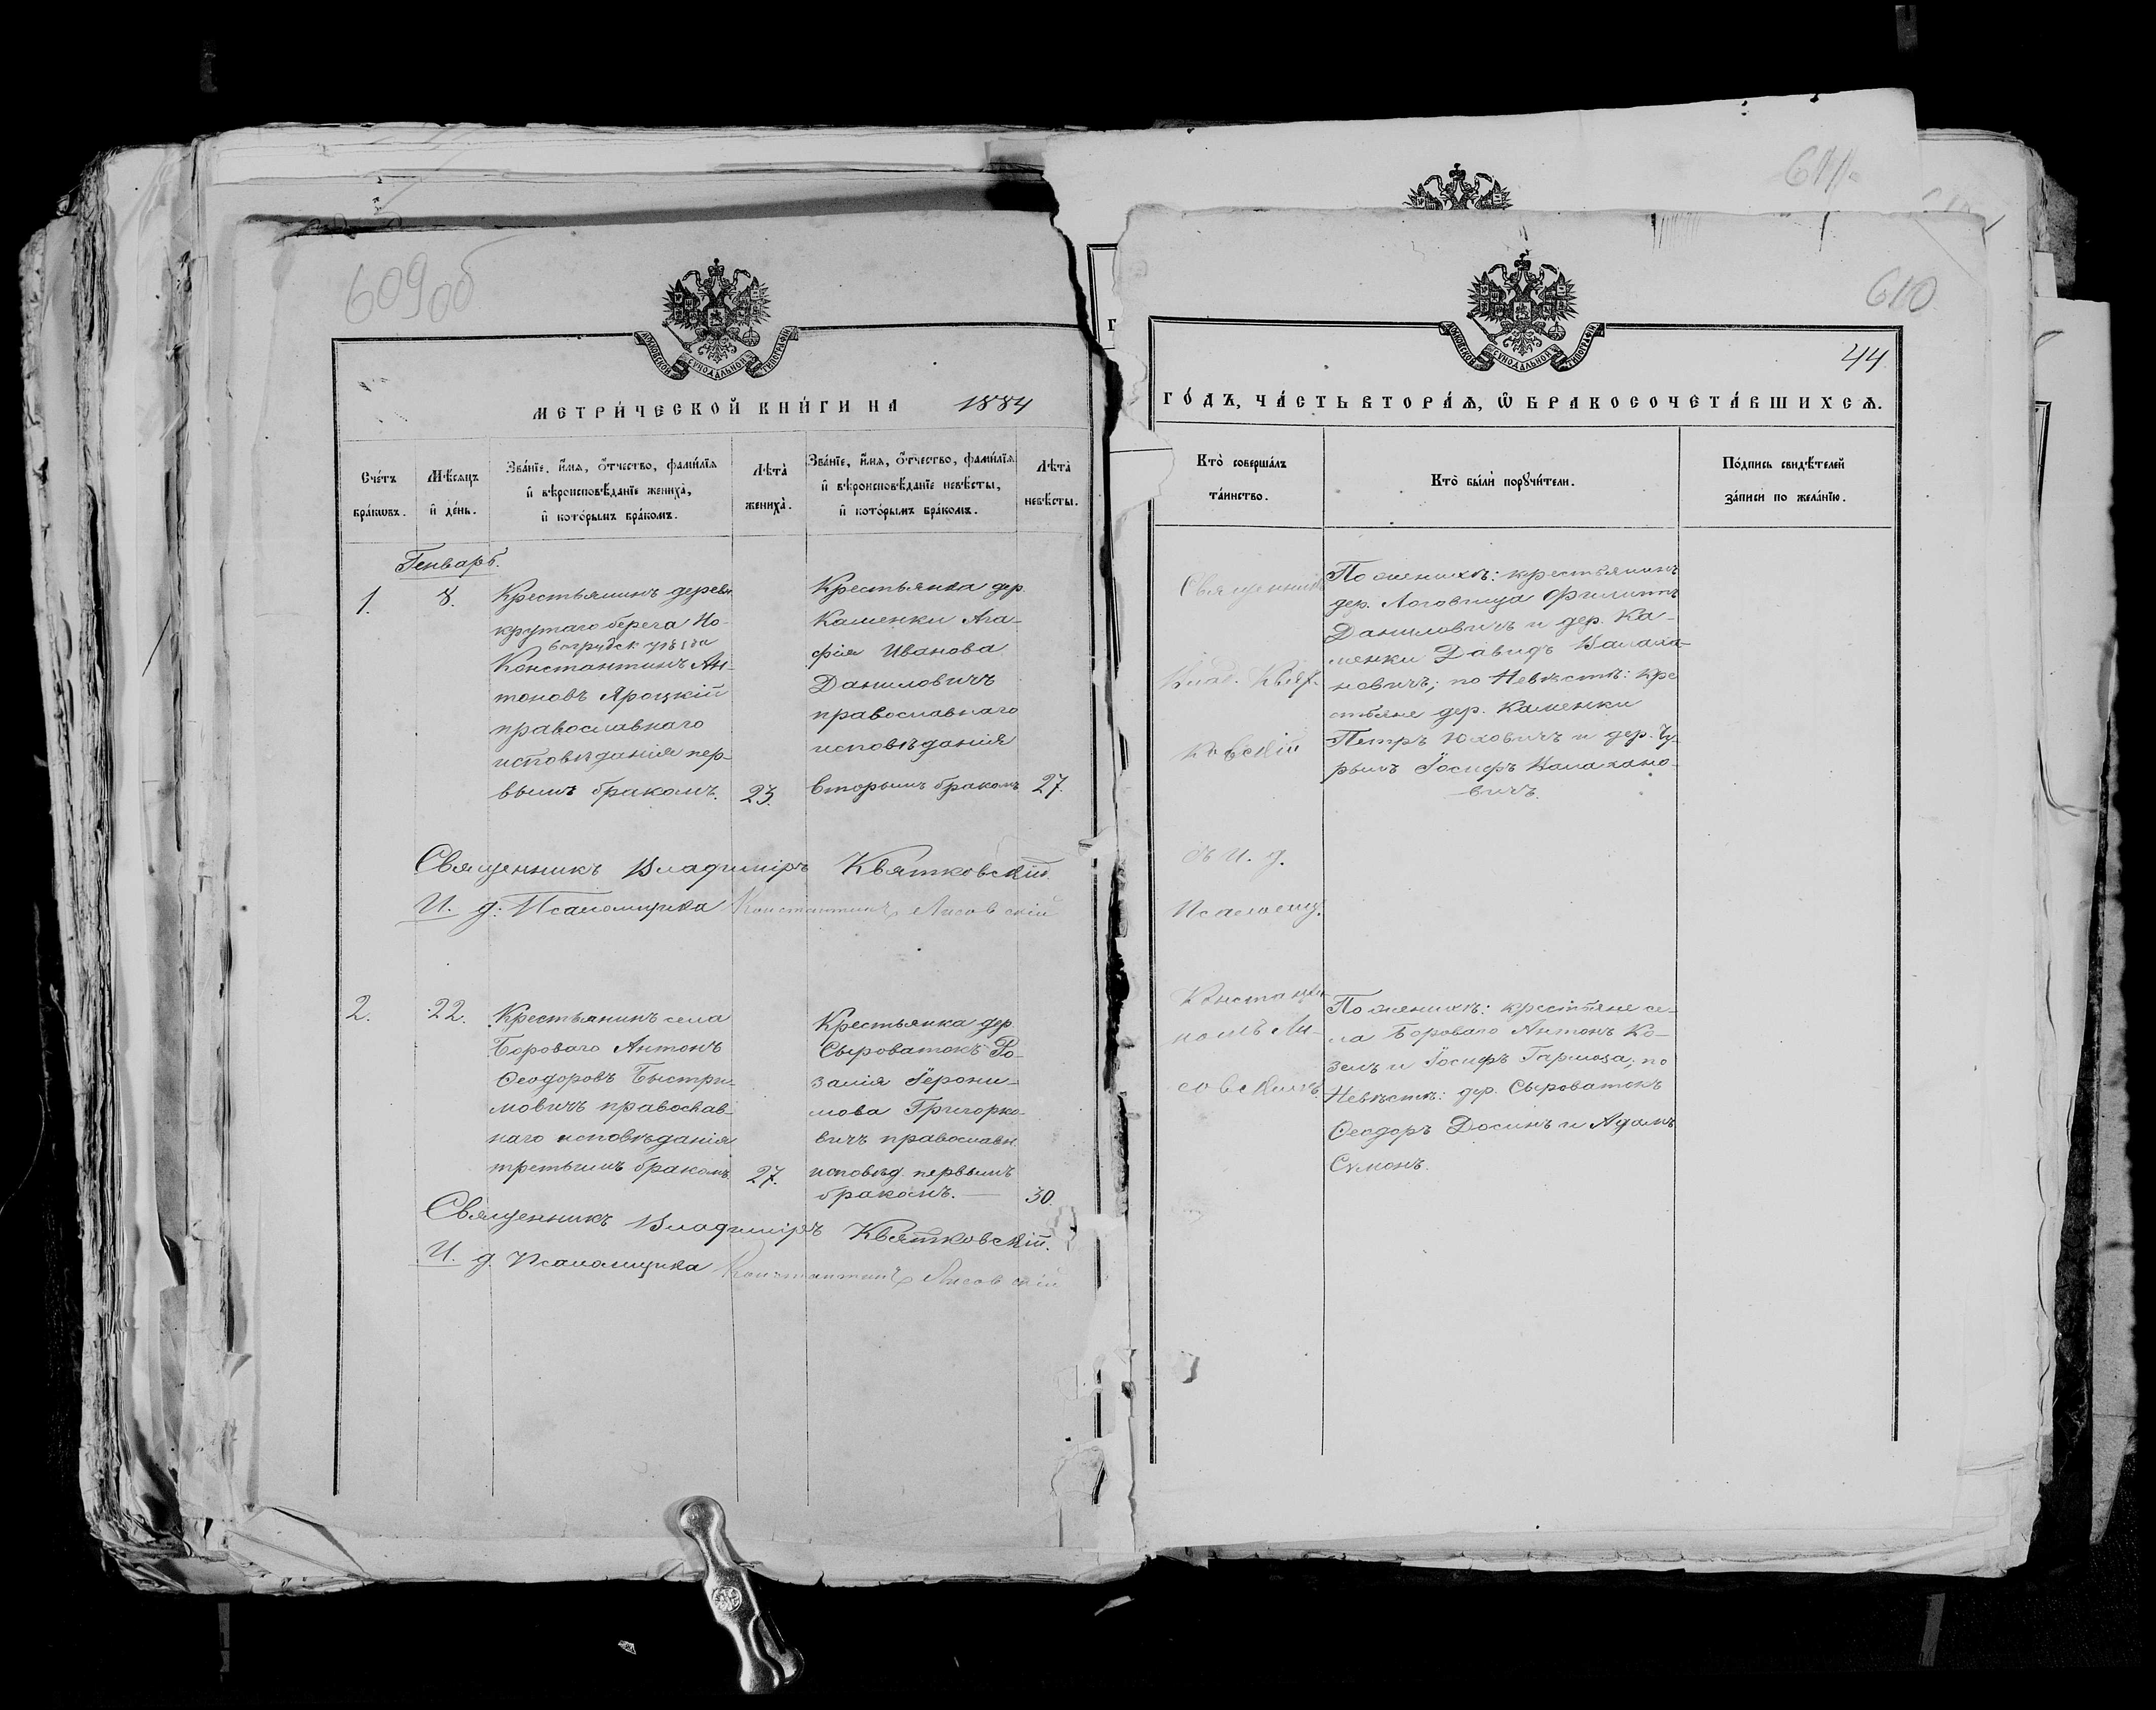 609об
МОСКОВСКОЙ СУНОДАЛЬНОЙ ТИПОГРАФІИ
МЕТРИ́ЧЕСКОЙ КНИ́ГИ НА 1884
Сче́тъ бра́ковъ.
Мѣ́сяцъ и҆ де́нь.
Зва́нїе, и҆́мя, ѻ҆́тчество, фами́лїя
и҆ вѣроисповѣ́данїе жениха̀,
и҆ кото́рымъ бра́комъ.
Лѣта̀ жениха̀.
Зва́нїе, и҆́мя, ѻ҆́тчество, фами́лїя
и҆ вѣроисповѣ́данїе невѣ́сты,
и҆ кото́рымъ бра́комъ.
Лѣта̀ невѣ́сты.
Генварь.
1.
8.
Крестьянинъ деревн
крутаго берега Но-
вогрудск уѣзда
Константинъ Ан-
тоновъ Яроцкій
православнаго
исповѣданія пер-
вымъ бракомъ.
23.
Крестьянка дер.
Каменки Ага-
фія Иванова
Даниловичъ
православнаго
исповѣданія
вторымъ бракомъ
27.
Священникъ Владиміръ Квятковскій.
И. д. Псаломщика Константинъ Лисовскій
2.
22.
Крестьянинъ села
Борового Антонъ
Ѳеодоровъ Быстри-
мовичъ православ-
наго исповѣданія
третьимъ бракомъ.
27.
Крестьянка дер.
Сыроватокъ Ро-
залія Іерони-
мова Григорко-
вичъ православн.
исповѣд. первымъ
бракомъ.
30.
Священникъ Владиміръ Квятковскій.
И. д. Псаломщика Константинъ Лисовскій
611
610
МОСКОВСКОЙ СУНОДАЛЬНОЙ ТИПОГРАФІИ
44
ГО́ДЪ, ЧА́СТЬ ВТОРА́Ѧ, Ѽ БРАКОСОЧЕТА́ВШИХСѦ.
Кто̀ соверша́лъ
та́инство.
Кто̀ бы́ли порꙋчи́тели.
По́дпись свидѣ́телей
за́писи по жела́нїю.
Священникъ
Влад. Квят-
ковскій
съ И. д.
Псаломщ.
Константи-
номъ Ли-
совскимъ.
По женихѣ: крестьянинъ
дер. Логовища Филиппъ
Даниловичъ и дер. Ка-
менки Давидъ Малаха-
новичъ; по Невѣстѣ: кре
стьяне дер. Каменки
Петръ Юховичъ и дер. Чу-
рымъ Іосифъ Малахано-
вичъ.
По женихѣ: крестьяне се-
ла Борового Антонъ Ко-
зелъ и Іосифъ Гармоза; по
Невѣстѣ: дер. Сыроватокъ
Ѳеодоръ Досинъ и Адамъ
Симонъ.